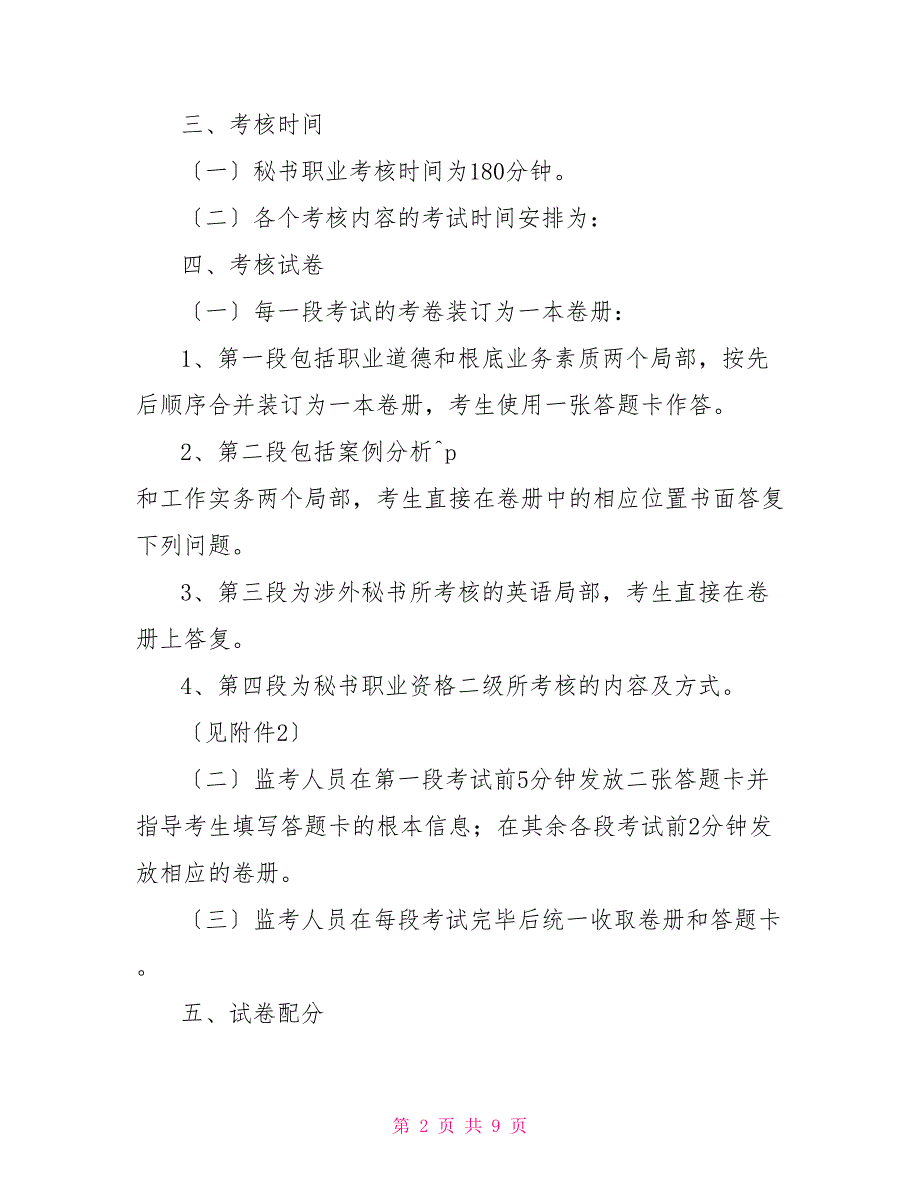 三、考核时间
〔一〕秘书职业考核时间为180分钟。
〔二〕各个考核内容的考试时间安排为：
四、考核试卷
〔一〕每一段考试的考卷装订为一本卷册：
1、第一段包括职业道德和根底业务素质两个局部，按先
后顺序合并装订为一本卷册，考生使用一张答题卡作答。
2、第二段包括案例分析^p
和工作实务两个局部，考生直接在卷册中的相应位置书面答复
下列问题。
3、第三段为涉外秘书所考核的英语局部，考生直接在卷
册上答复。
4、第四段为秘书职业资格二级所考核的内容及方式。
〔见附件2〕
〔二〕监考人员在第一段考试前5分钟发放二张答题卡并
指导考生填写答题卡的根本信息；在其余各段考试前2分钟发
放相应的卷册。
〔三〕监考人员在每段考试完毕后统一收取卷册和答题卡
。
五、试卷配分
第 2 页 共 9 页